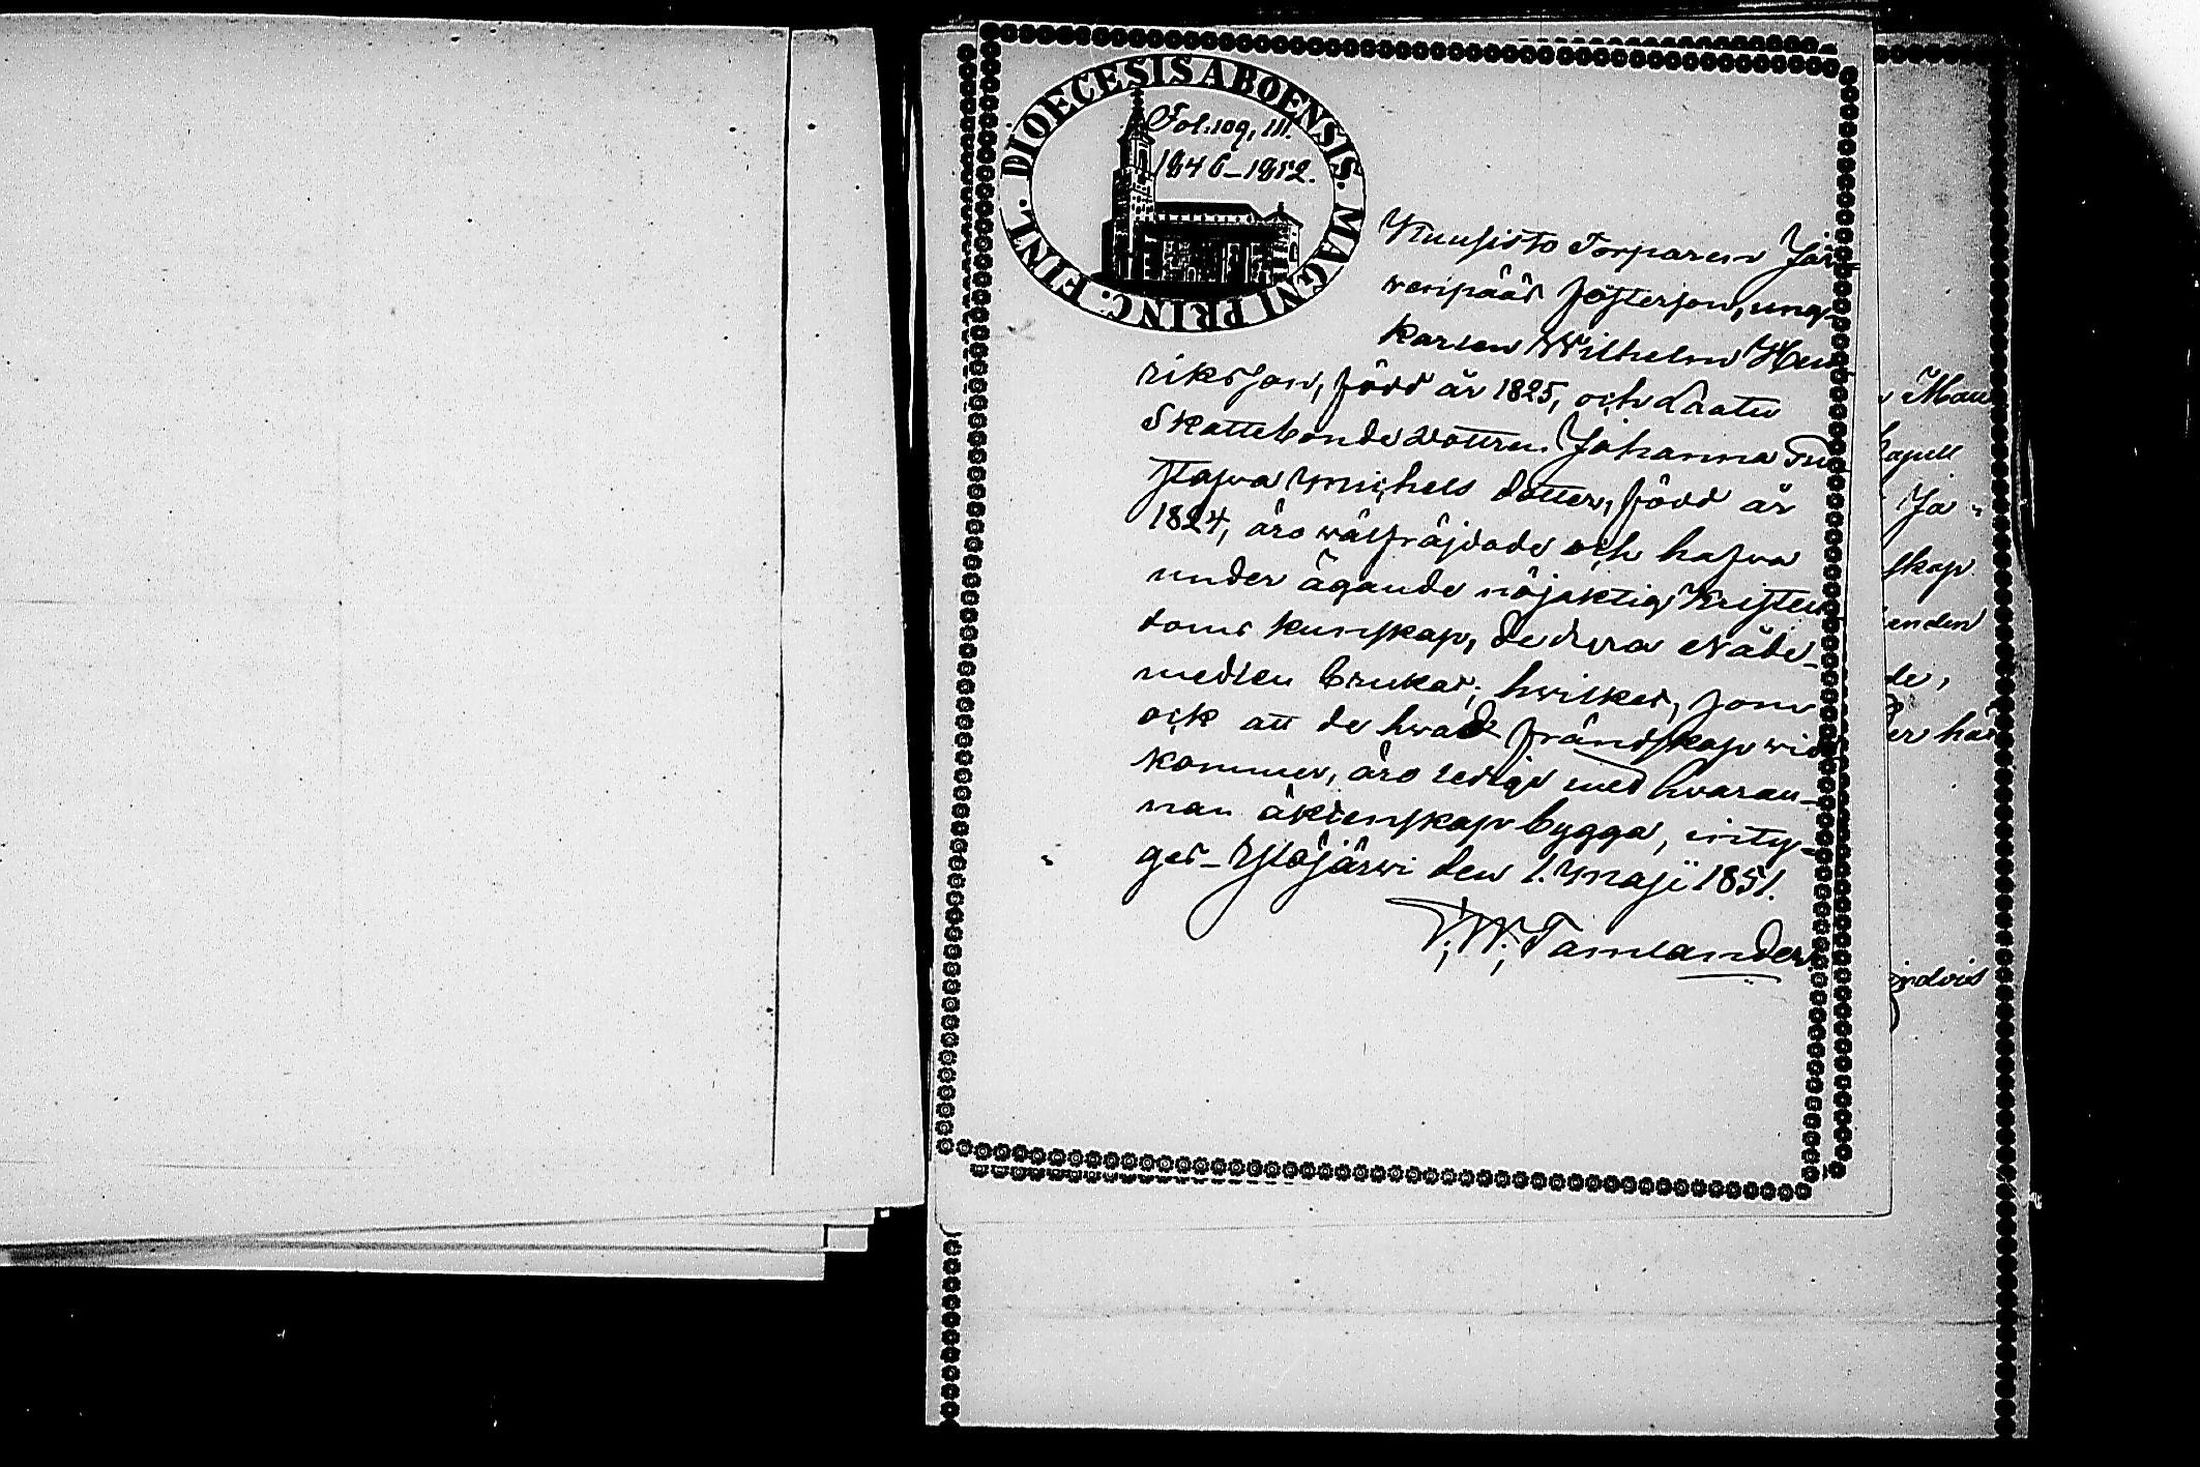 DIOECESIS ABOENSIS. MAGNI PRINC. FINL.
Fol: 109, 111.
1846–1852.
Kuusisto Torparen Jär
wenpääs fostersson, ung-
karlen Wilhelm Hen
riksson, född år 1825, och
Skattebonde dottren Johanna Gu
stafva Michels dotter, född år
1824, äro wälfräjdade och hafva
under ägande nöjaktig Kristen
doms kunskap, de dyra Nåde-
medlen brukat; hvilket, som
ock att de hvad frändskap wid
kommer, äro lediga med hvaran-
nan äktenskap bygga, inty-
gas_ Ylöjärwi den 1. Maji 1851.
V; W; Tamlander
Man
kapell
Ja-
skap
enden
de,
er har